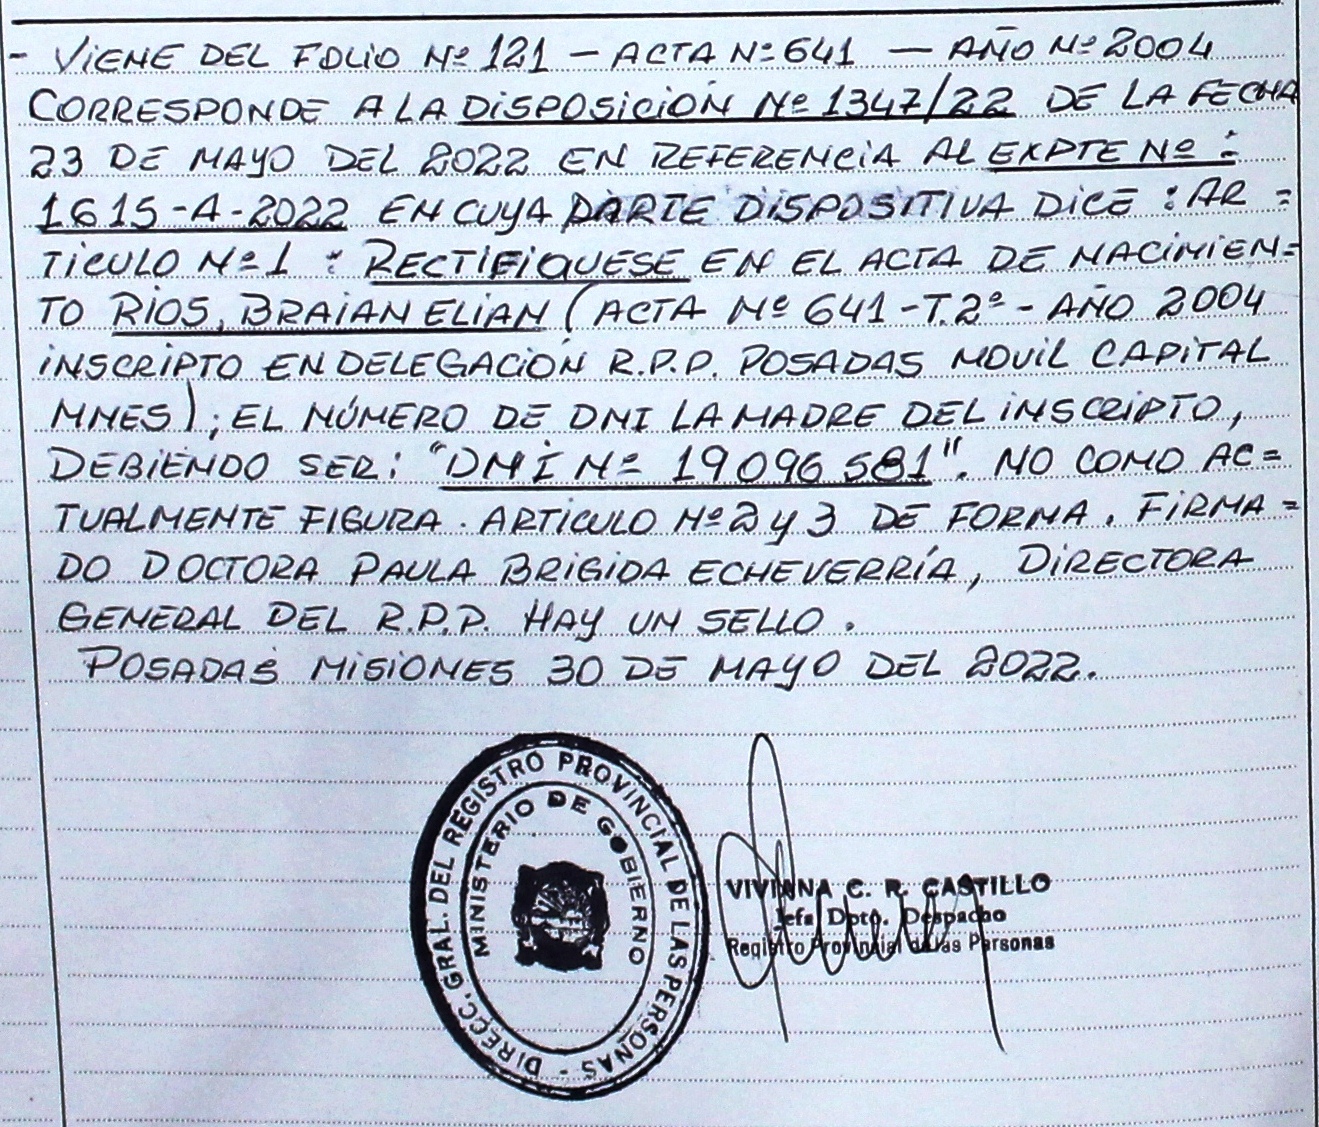 - VIENE DEL FOLIO Nº 121 - ACTA Nº 641 - AÑO Nº 2004
CORRESPONDE A LA DISPOSICIÓN Nº 1347/22 DE LA FECHA
23 DE MAYO DEL 2022 EN REFERENCIA AL EXPTE Nº:
1615-A-2022 EN CUYA PARTE DISPOSITIVA DICE: AR=
TICULO Nº 1: RECTIFIQUESE EN EL ACTA DE NACIMIEN=
TO RIOS, BRAIAN ELIAN (ACTA Nº 641-T.2º-AÑO 2004
INSCRIPTO EN DELEGACIÓN R.P.P. POSADAS MOVIL CAPITAL
MNES); EL NÚMERO DE DNI LA MADRE DEL INSCRIPTO,
DEBIENDO SER: "DNI Nº 19096581". NO COMO AC=
TUALMENTE FIGURA. ARTICULO Nº 2 Y 3 DE FORMA. FIRMA=
DO DOCTORA PAULA BRIGIDA ECHEVERRÍA, DIRECTORA
GENERAL DEL R.P.P. HAY UN SELLO.
POSADAS MISIONES 30 DE MAYO DEL 2022.
DIRECC. GRAL. DEL REGISTRO PROVINCIAL DE LAS PERSONAS -
MINISTERIO DE GOBIERNO
VIVIANA C. R. CASTILLO
Jefa Dpto. Despacho
Registro Provincial de las Personas